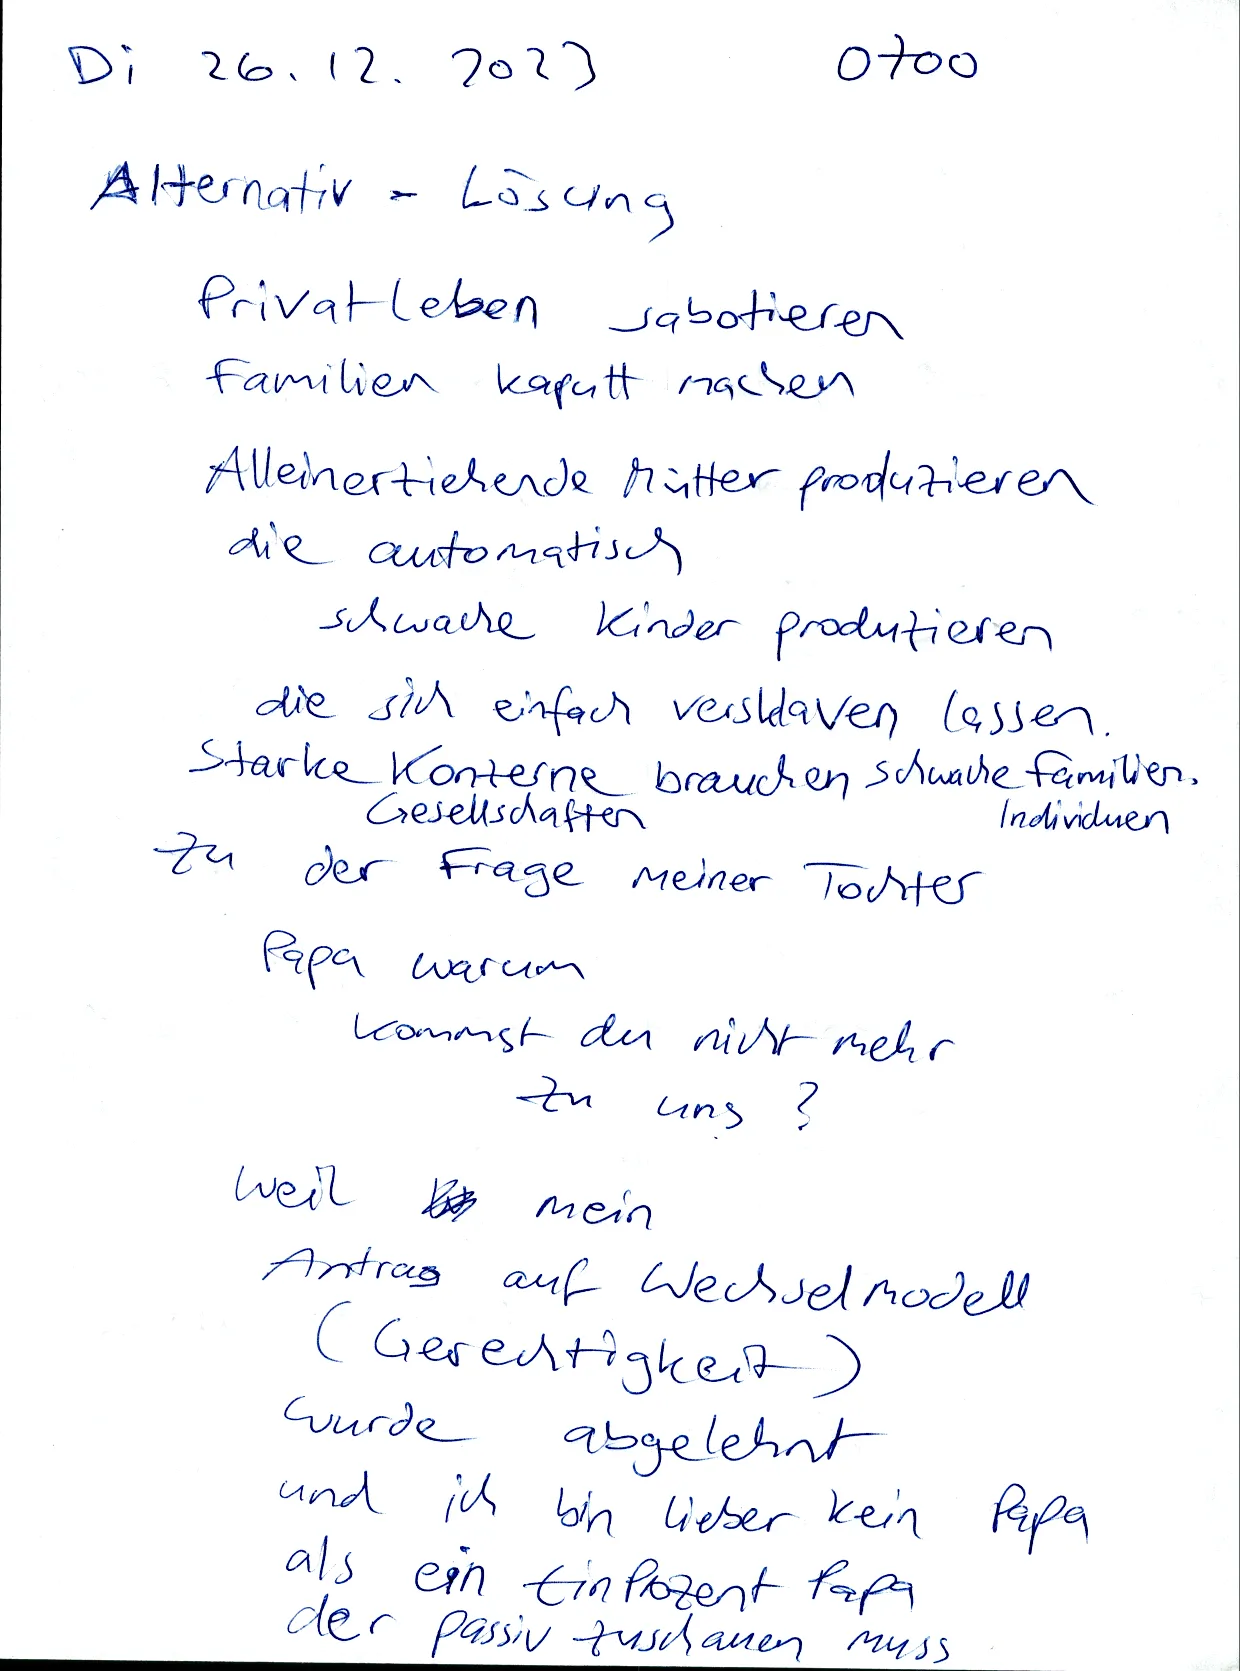 Di 26.12.2023 0700
Alternativ-Lösung
Privatleben sabotieren
Familien kaputt machen
Alleinerziehende Mütter produzieren
die automatisch
schwache Kinder produzieren
die sich einfach versklaven lassen.
Starke Konzerne brauchen schwache Familien.
Gesellschaften Individuen
Zu der Frage meiner Tochter
Papa warum
kommst du nicht mehr
zu uns?
Weil mein
Antrag auf Wechselmodell
(Gerechtigkeit)
wurde abgelehnt
und ich bin lieber kein Papa
als ein EinProzent Papa
der passiv zuschauen muss